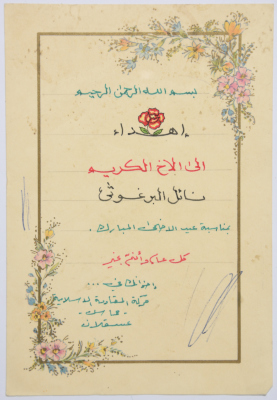 بسم الله الرحمن الرحيم
إهداء
الى الاخ الكريم
نائل البرغوثي
بمناسبة عيد الاضحى المبارك.
كل عام وانتم بخير
اخوانكم في ...
حركة المقاومة الاسلامية
- حماس -
عسقلان